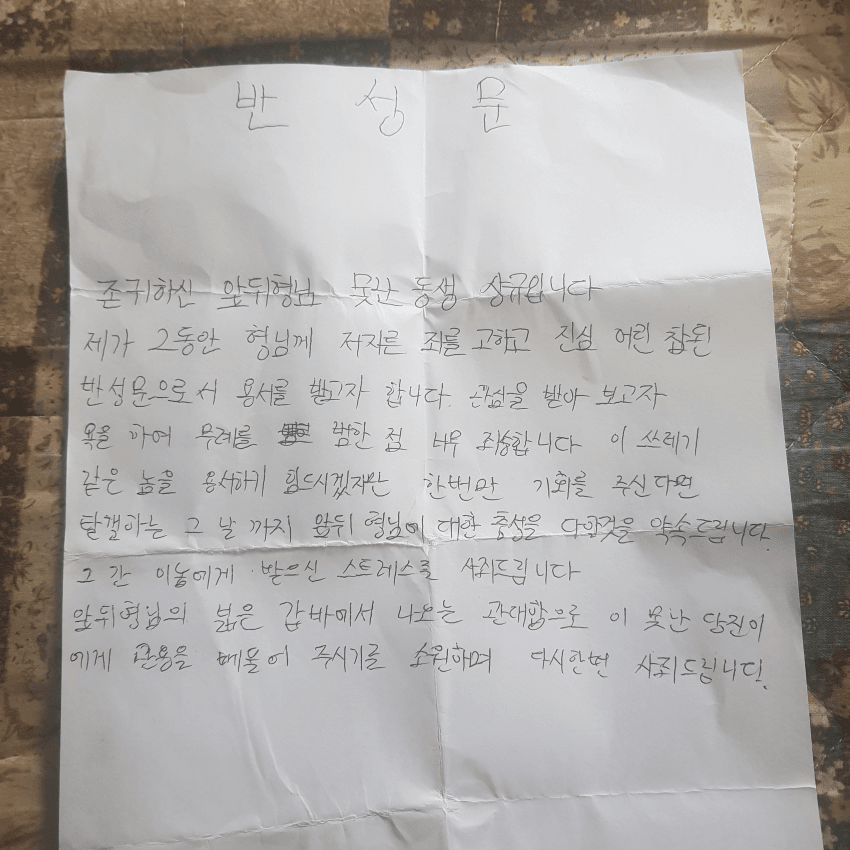 반성문
존귀하신 앞뒤형님 못난 동생 상규입니다
제가 그동안 형님께 저지른 죄를 고하고 진심 어린 참된
반성문으로서 용서를 받고자 합니다. 관심을 받아 보고자
욕을 하여 무례를 범한 점 너무 죄송합니다 이 쓰레기
같은 놈을 용서하기 힘드시겠지만 한번만 기회를 주신다면
탈갤하는 그 날 까지 앞뒤 형님에 대한 충성을 다할것을 약속드립니다.
그 간 이놈에게 받으신 스트레스를 사죄드립니다
앞뒤형님의 넓은 갑바에서 나오는 관대함으로 이 못난 당진이
에게 관용을 베풀어 주시기를 소원하며 다시한번 사죄드립니다!